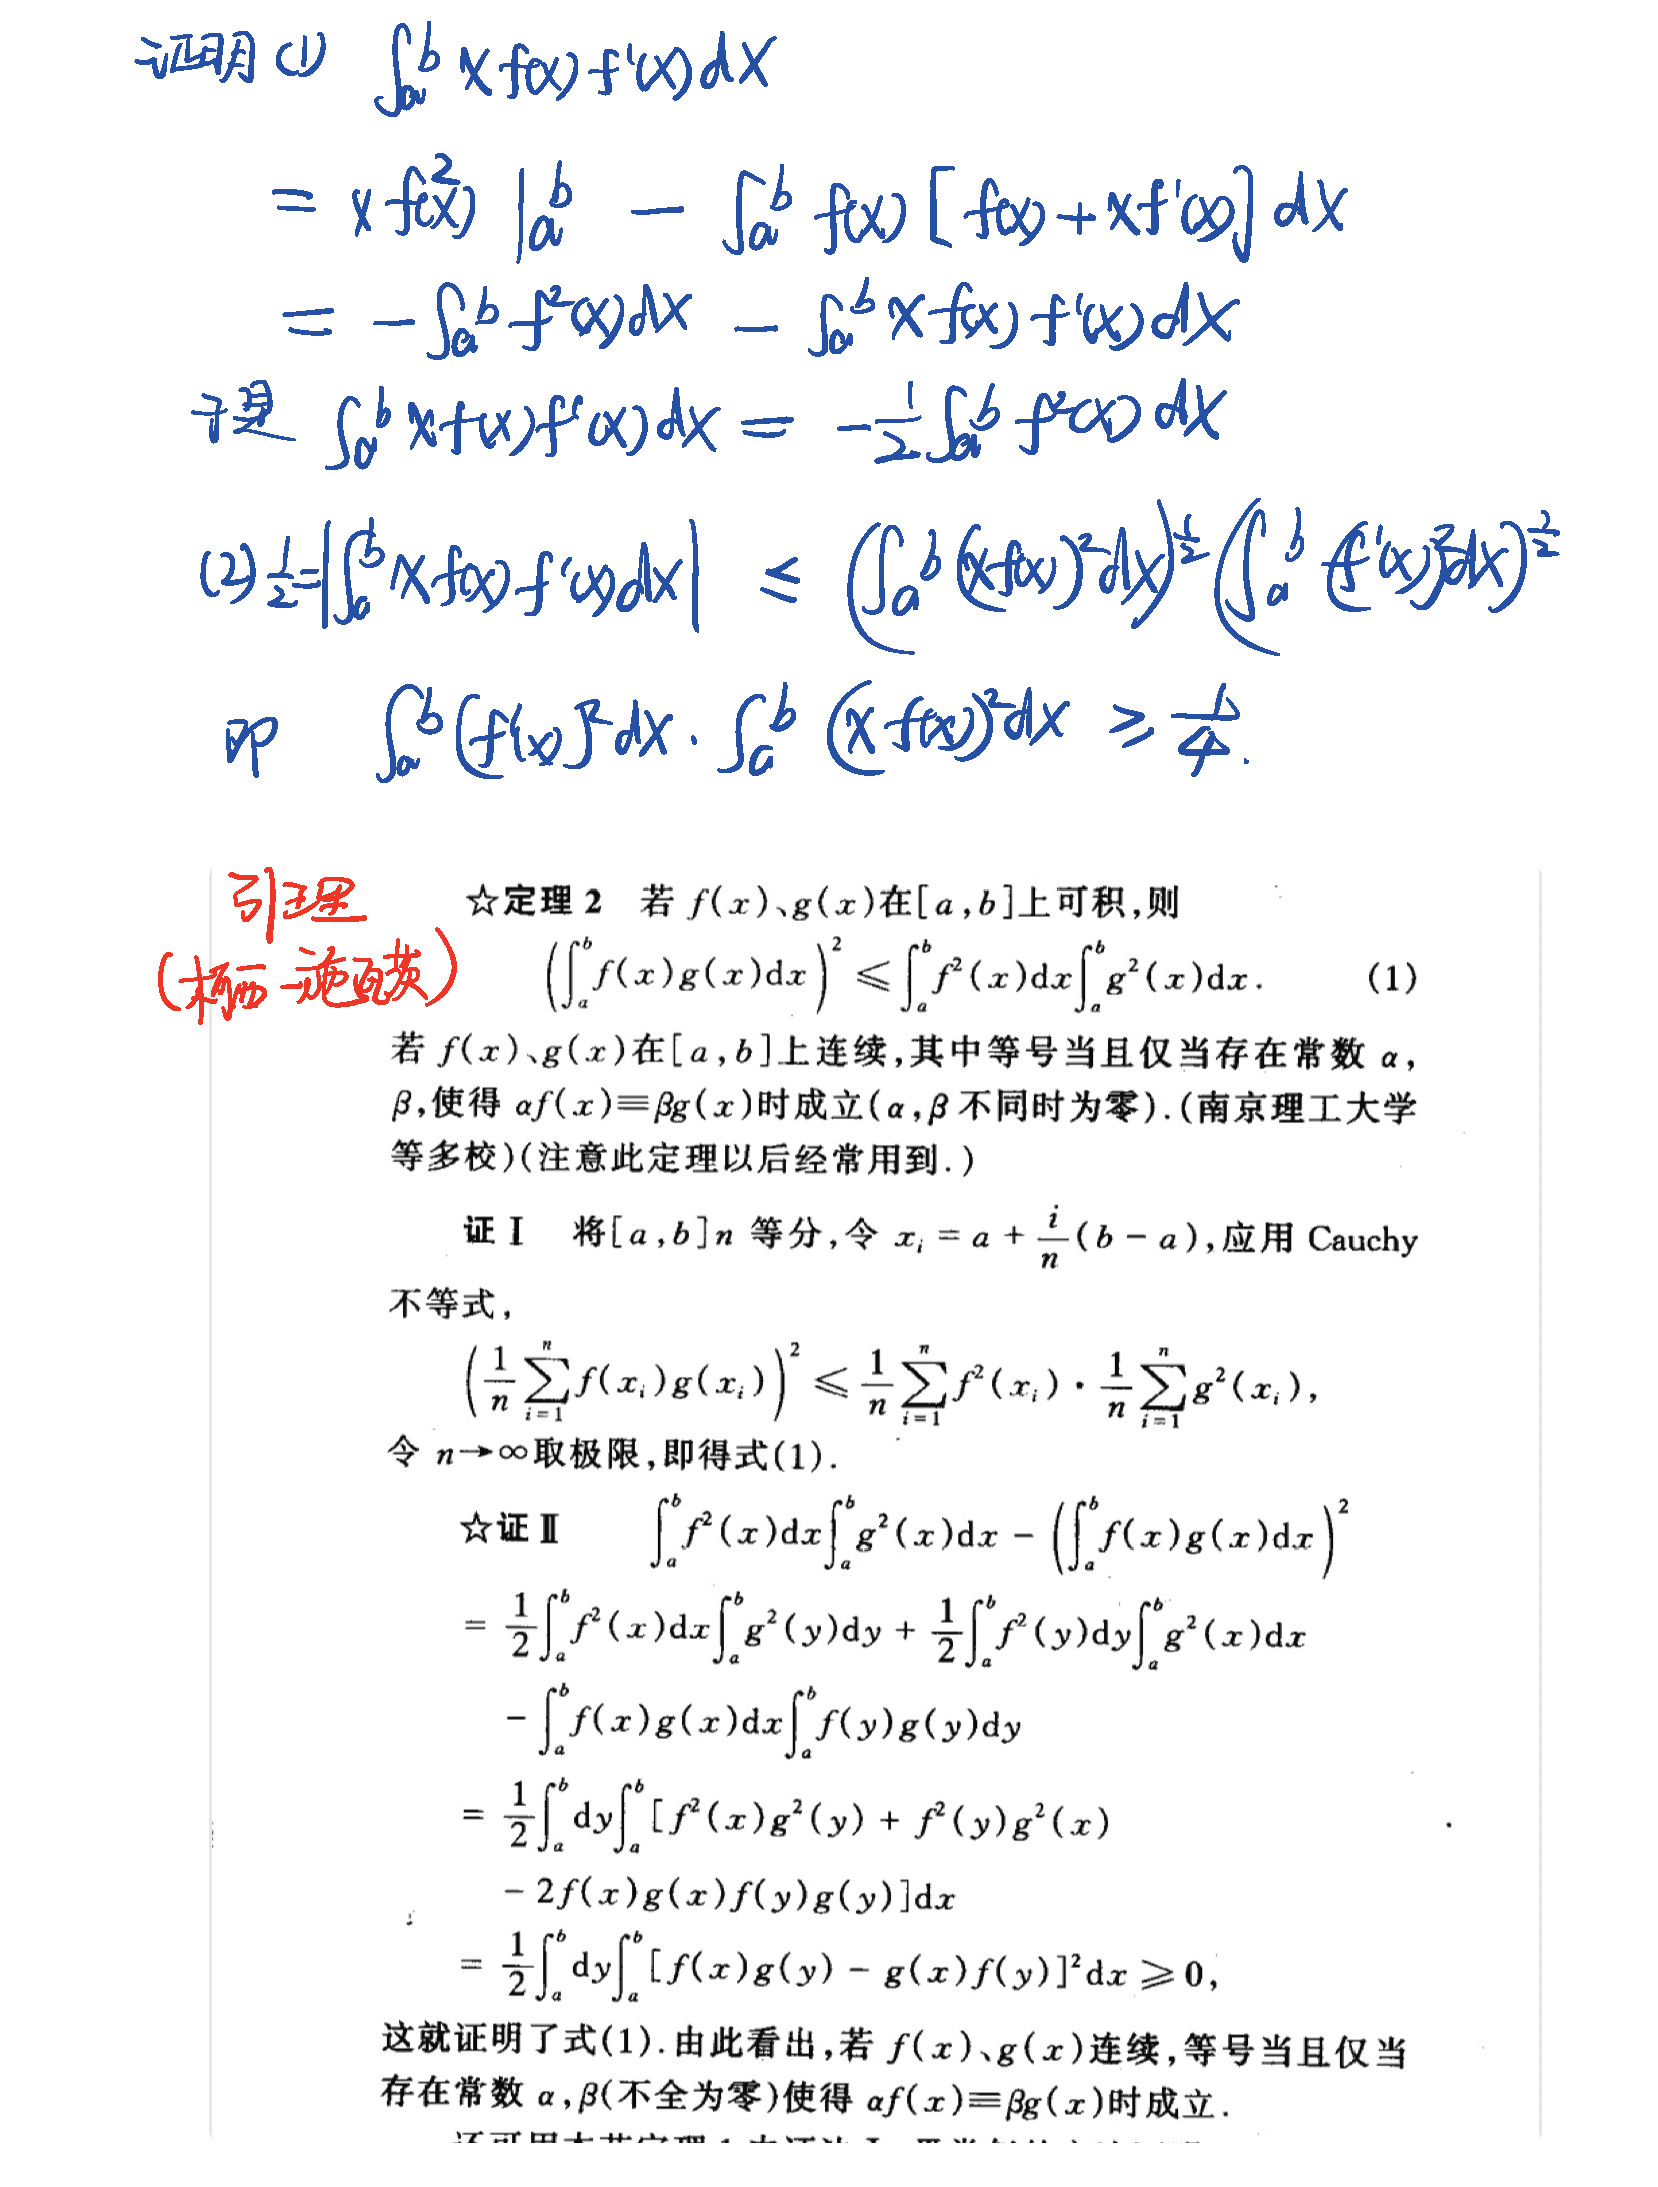 证明(1) ∫_a^b x f(x) f'(x) dx
= x f²(x) |_a^b - ∫_a^b f(x) [f(x) + x f'(x)] dx
= -∫_a^b f²(x) dx - ∫_a^b x f(x) f'(x) dx
于是 ∫_a^b x f(x) f'(x) dx = -1/2 ∫_a^b f²(x) dx
(2) 1/2 = |∫_a^b x f(x) f'(x) dx| ≤ (∫_a^b (x f(x))² dx)^{1/2} (∫_a^b (f'(x))² dx)^{1/2}
即 ∫_a^b (f'(x))² dx · ∫_a^b (x f(x))² dx ≥ 1/4.
引理
(柯西-施瓦茨)
☆定理 2 若 f(x)、g(x)在[a,b]上可积,则
(∫_a^b f(x)g(x)dx)² ≤ ∫_a^b f²(x)dx∫_a^b g²(x)dx. (1)
若 f(x)、g(x)在[a,b]上连续,其中等号当且仅当存在常数 α,
β,使得 αf(x)≡βg(x)时成立(α,β 不同时为零).(南京理工大学
等多校)(注意此定理以后经常用到.)
证 Ⅰ 将[a,b]n 等分,令 x_i = a + i/n (b - a),应用 Cauchy
不等式,
(1/n ∑_{i=1}^n f(x_i)g(x_i))² ≤ 1/n ∑_{i=1}^n f²(x_i) · 1/n ∑_{i=1}^n g²(x_i),
令 n→∞取极限,即得式(1).
☆证 Ⅱ ∫_a^b f²(x)dx∫_a^b g²(x)dx - (∫_a^b f(x)g(x)dx)²
= 1/2 ∫_a^b f²(x)dx∫_a^b g²(y)dy + 1/2 ∫_a^b f²(y)dy∫_a^b g²(x)dx
- ∫_a^b f(x)g(x)dx∫_a^b f(y)g(y)dy
= 1/2 ∫_a^b dy∫_a^b [f²(x)g²(y) + f²(y)g²(x)
- 2f(x)g(x)f(y)g(y)]dx
= 1/2 ∫_a^b dy∫_a^b [f(x)g(y) - g(x)f(y)]²dx ≥ 0,
这就证明了式(1).由此看出,若 f(x)、g(x)连续,等号当且仅当
存在常数 α,β(不全为零)使得 αf(x)≡βg(x)时成立.